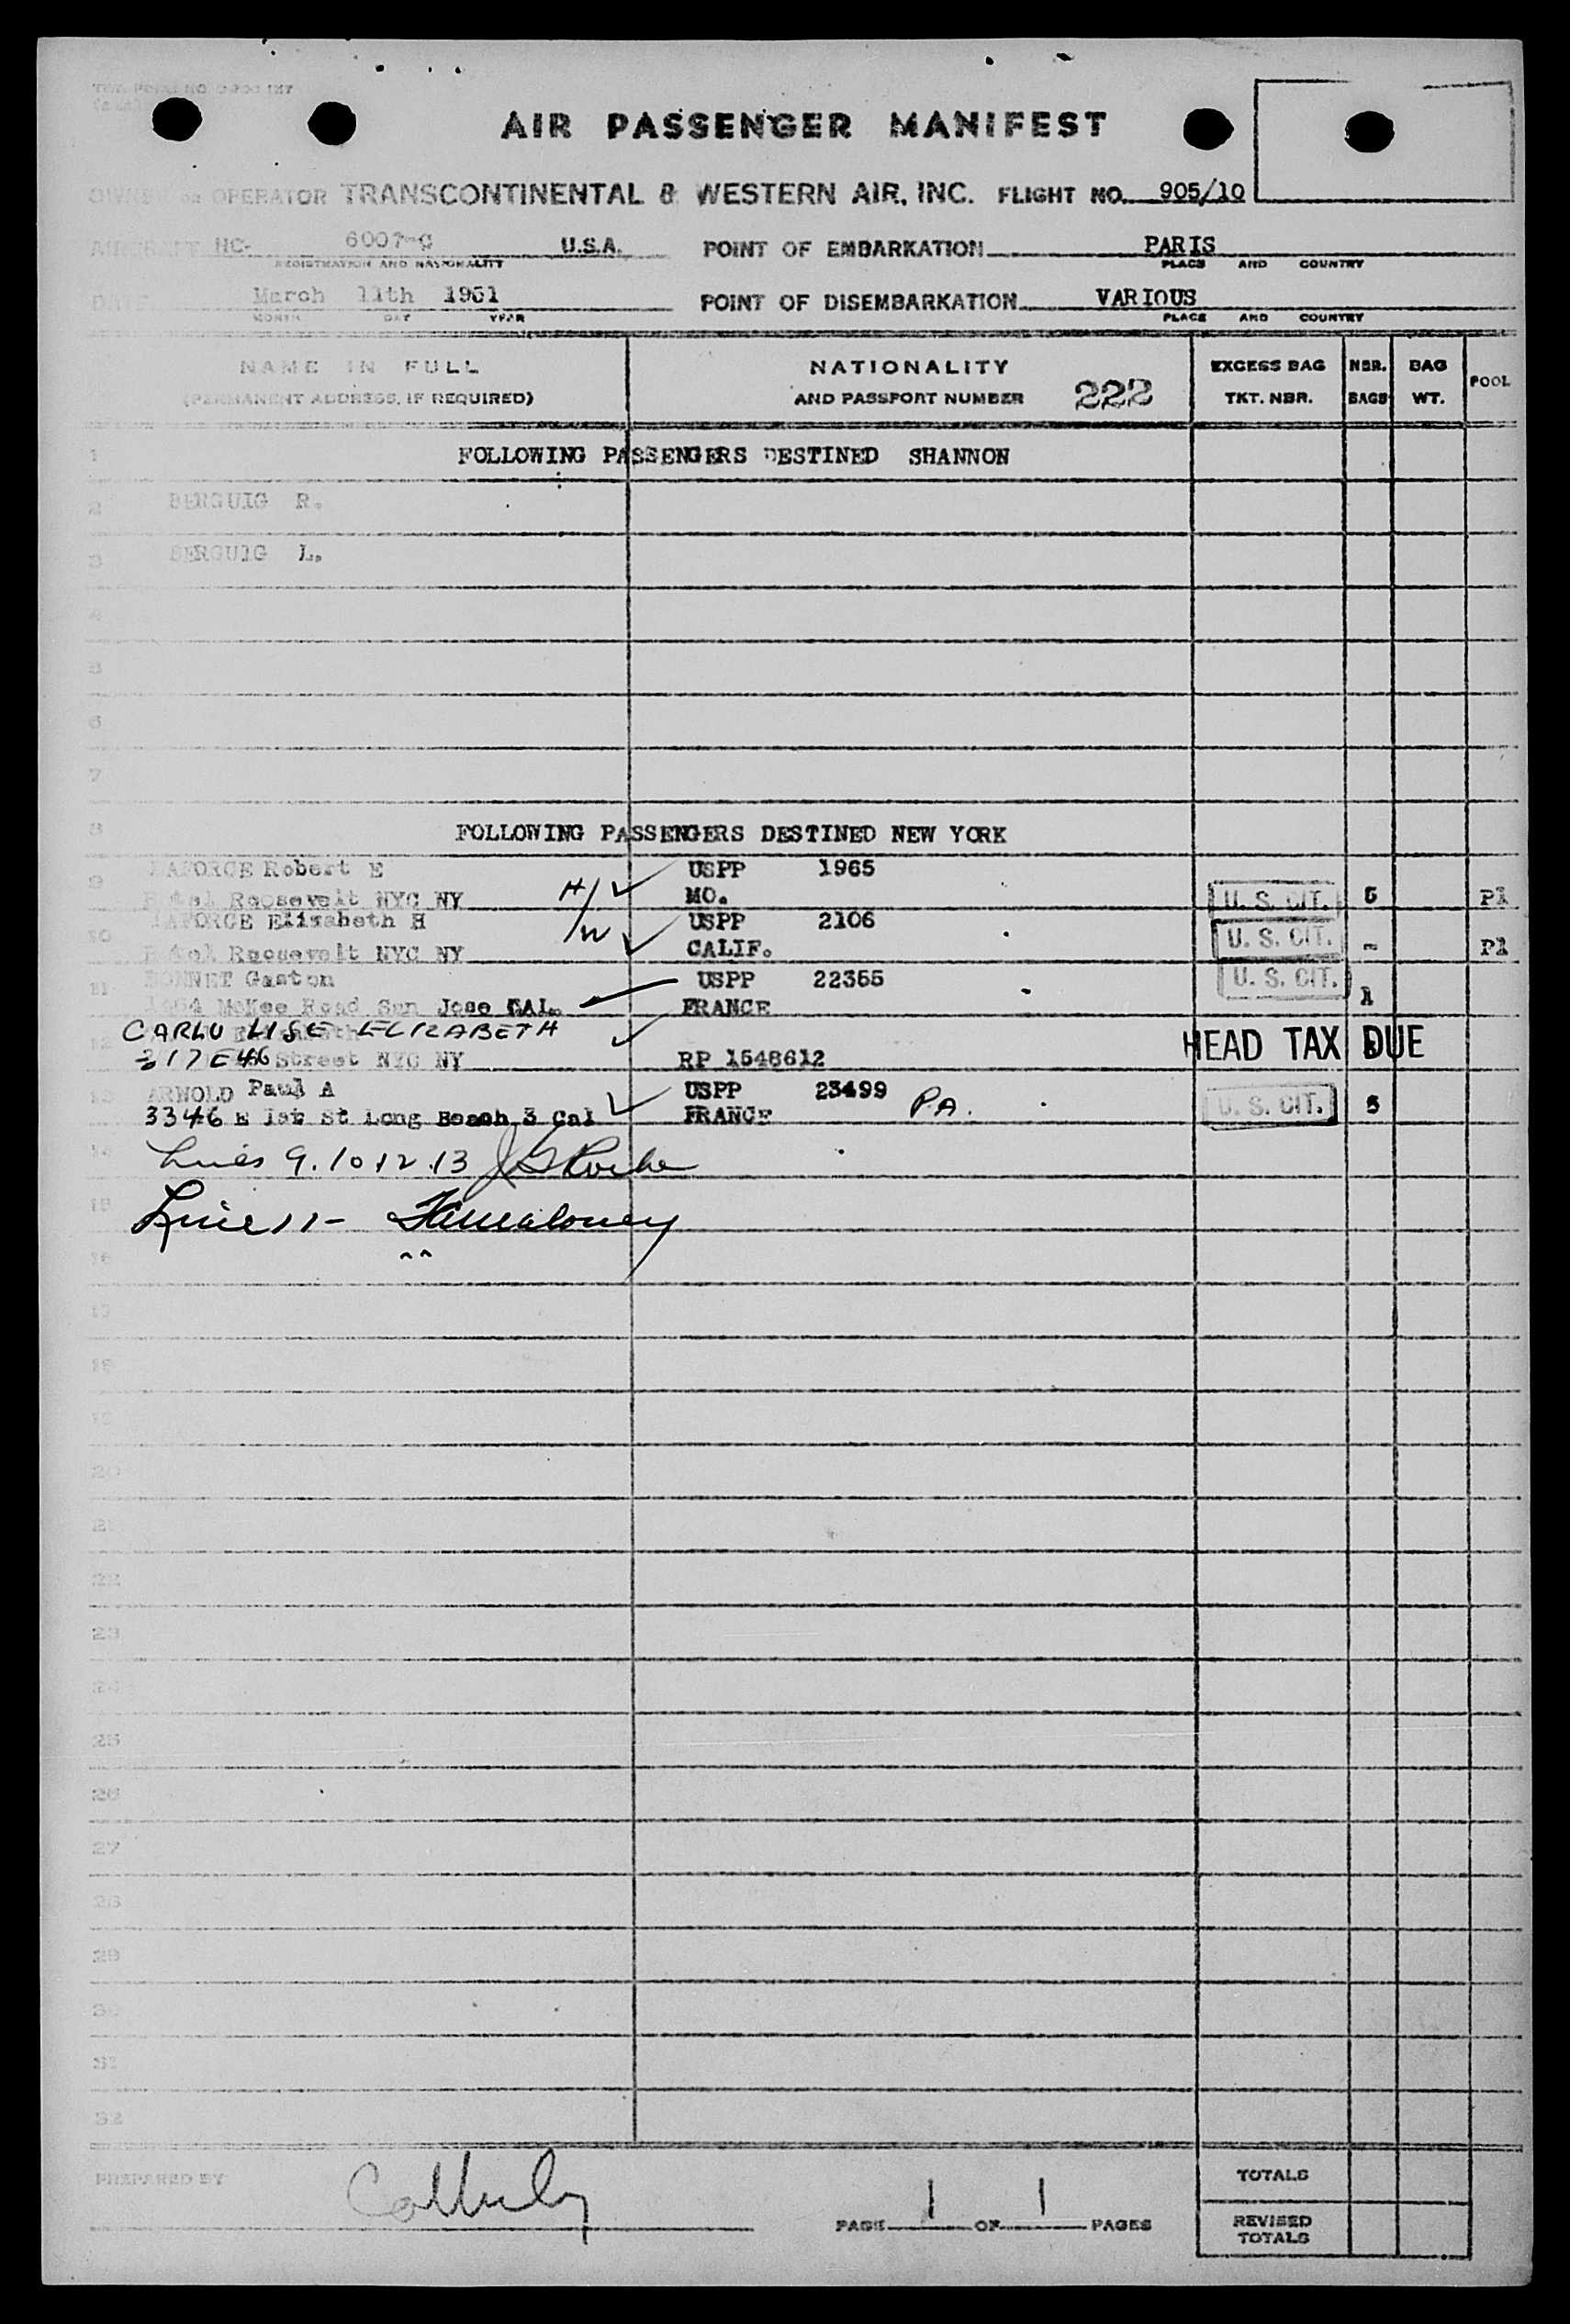 AIR PASSENGER MANIFEST
OWNER OR OPERATOR TRANSCONTINENTAL & WESTERN AIR, INC. FLIGHT NO. 905/10
AIRCRAFT NC- 6007-C U.S.A. POINT OF EMBARKATION PARIS
REGISTRATION AND NATIONALITY PLACE AND COUNTRY
DATE March 11th 1951 POINT OF DISEMBARKATION VARIOUS
MONTH DAY YEAR PLACE AND COUNTRY
NAME IN FULL NATIONALITY EXCESS BAG NBR. BAG POOL
(PERMANENT ADDRESS, IF REQUIRED) AND PASSPORT NUMBER 222 TKT. NBR. BAGS WT.
1 FOLLOWING PASSENGERS DESTINED SHANNON
2 BERGUIG R.
3 BERGUIG L.
4
5
6
7
8 FOLLOWING PASSENGERS DESTINED NEW YORK
9 LAFORCE Robert E USPP 1965
Hotel Roosevelt NYC NY H/ MO. U. S. CIT. 5 P1
10 LAFORCE Elizabeth H /W USPP 2106
Hotel Roosevelt NYC NY CALIF. U. S. CIT. - P1
11 BONNET Gaston USPP 22355 U. S. CIT.
McKee Road San Jose CAL. FRANCE 1
12 CARLU LISE ELIZABETH HEAD TAX DUE
317 E 46 Street NYC NY RP 1548612
13 ARNOLD Paul A USPP 23499
3346 E 1st St Long Beach 3 Cal FRANCE P.A. U. S. CIT. 3
14 Lines 9. 10 12 .13
15 Line 11-
16
17
18
19
20
21
22
23
24
25
26
27
28
29
30
31
32
PREPARED BY PAGE 1 OF 1 PAGES TOTALS
REVISED
TOTALS